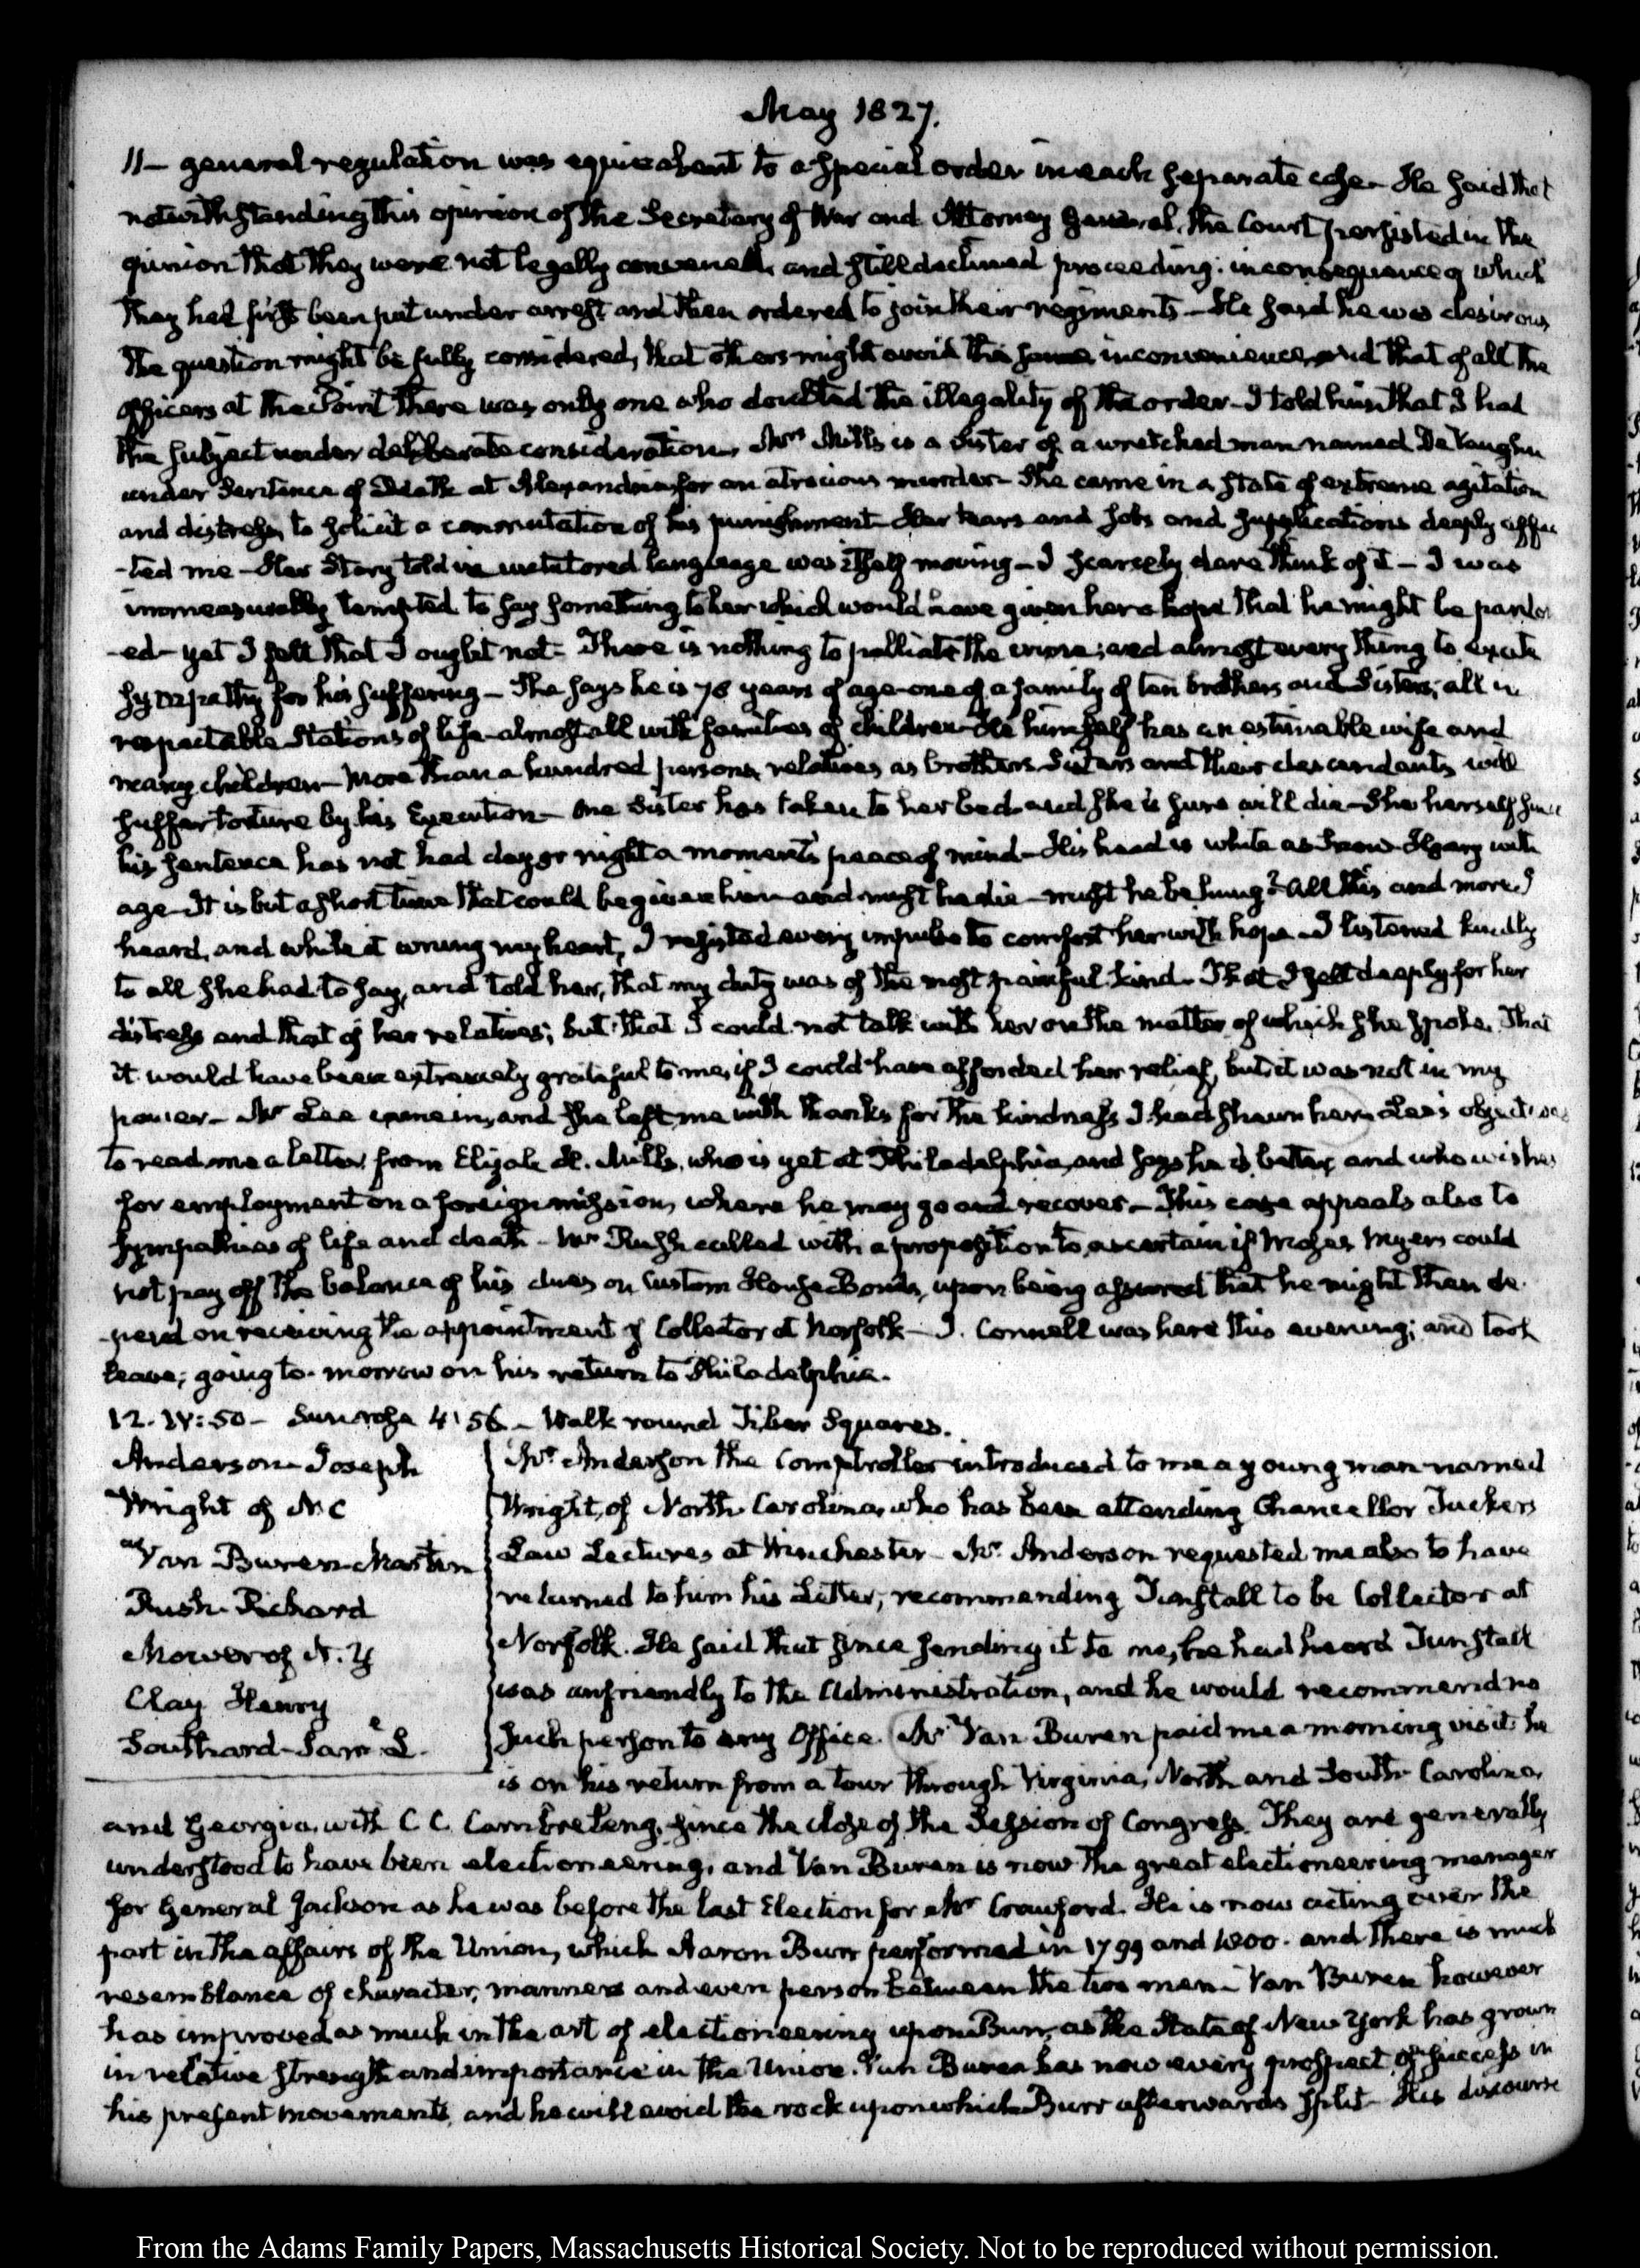 May 1827.
11— general regulation was equivalent to a special order in each separate case— He said that
notwithstanding this opinion of the Secretary of War and Attorney General, the Court persisted in the
opinion that they were not legally convened, and still declined proceeding: in consequence of which
they had first been put under arrest and then ordered to join their regiments— He said he was desirous
the question might be fully considered, that others might avoid the same inconvenience, and that of all the
officers at the Point there was only one who doubted the illegality of the order— I told him that I had
the subject under deliberate consideration. Mrs. Mills is a Sister of a wretched man named De Vaughn
under Sentence of Death at Alexandria for an atrocious murder— She came in a State of extreme agitation
and distress, to solicit a commutation of his punishment— Her tears and sobs and supplications deeply affec
-ted me— Her Story told in untutored language was itself moving— I scarcely dare think of it— I was
immeasurably tempted to say something to her which would have given her a hope that he might be pardon
-ed— yet I felt that I ought not— There is nothing to palliate the crime; and almost every thing to excite
sympathy for his suffering— She says he is 76 years of age— one of a family of ten brothers and Sisters; all in
respectable Stations of life— almost all with families of children— He himself has an estimable wife and
many children— More than a hundred persons, relatives as brothers Sisters and their descendants will
suffer torture by his Execution— One Sister has taken to her bed and she is sure will die— She herself since
his sentence has not had day or night a moment's peace of mind— His head is white as Snow— Hoary with
age— It is but a short time that could be given him— and must he die— must he be hung? All this and more I
heard, and while it wrung my heart, I resisted every impulse to comfort her with hope— I listened kindly
to all she had to say, and told her, that my duty was of the most painful kind— That I felt deeply for her
distress and that of her relatives; but that I could not talk with her on the matter of which she spoke. That
it would have been extremely grateful to me, if I could have afforded her relief, but it was not in my
power— Mr. Lee came in, and she left me with thanks for the kindness I had shewn her— Lee's object was
to read me a letter from Elijah H. Mills, who is yet at Philadelphia, and says he is better, and who wishes
for employment on a foreign mission, where he may go and recover.— This case appeals also to
sympathies of life and death— Mr. Rush called with a proposition to ascertain if Moses Myers could
not pay off the balance of his dues on Custom House Bonds, upon being assured that he might then de-
-pend on receiving the appointment of Collector at Norfolk— J. Connell was here this evening; and took
leave; going to-morrow on his return to Philadelphia.
12. IV: 50— Sun rose 4:56— Walk round Tiber Squares.
Anderson— Joseph
Wright of N. C
Van Buren— Martin
Rush— Richard
Mower of N. Y
Clay Henry
Southard— Saml. L.
Mr. Anderson the Comptroller introduced to me a young man named
Wright, of North Carolina, who has been attending Chancellor Tuckers
Law Lectures at Winchester— Mr. Anderson requested me also to have
returned to him his Letter, recommending Tunstall to be Collector at
Norfolk. He said that since sending it to me, he had heard Tunstall
was unfriendly to the Administration, and he would recommend no
such person to any Office. Mr. Van Buren paid me a morning visit. he
is on his return from a tour through Virginia, North and South Carolina,
and Georgia, with C. C. Cambreleng, since the close of the Session of Congress. They are generally
understood to have been electioneering, and Van Buren is now the great electioneering manager
for General Jackson as he was before the last Election for Mr. Crawford. He is now acting over the
part in the affairs of the Union, which Aaron Burr performed in 1799 and 1800. and there is much
resemblance of character, manners and even person between the two men— Van Buren however
has improved as much in the art of electioneering upon Burr, as the State of New York has grown
in relative strength and importance in the Union. Van Buren has now every prospect of success in
his present movements, and he will avoid the rock upon which Burr afterwards split— His discourse
From the Adams Family Papers, Massachusetts Historical Society. Not to be reproduced without permission.